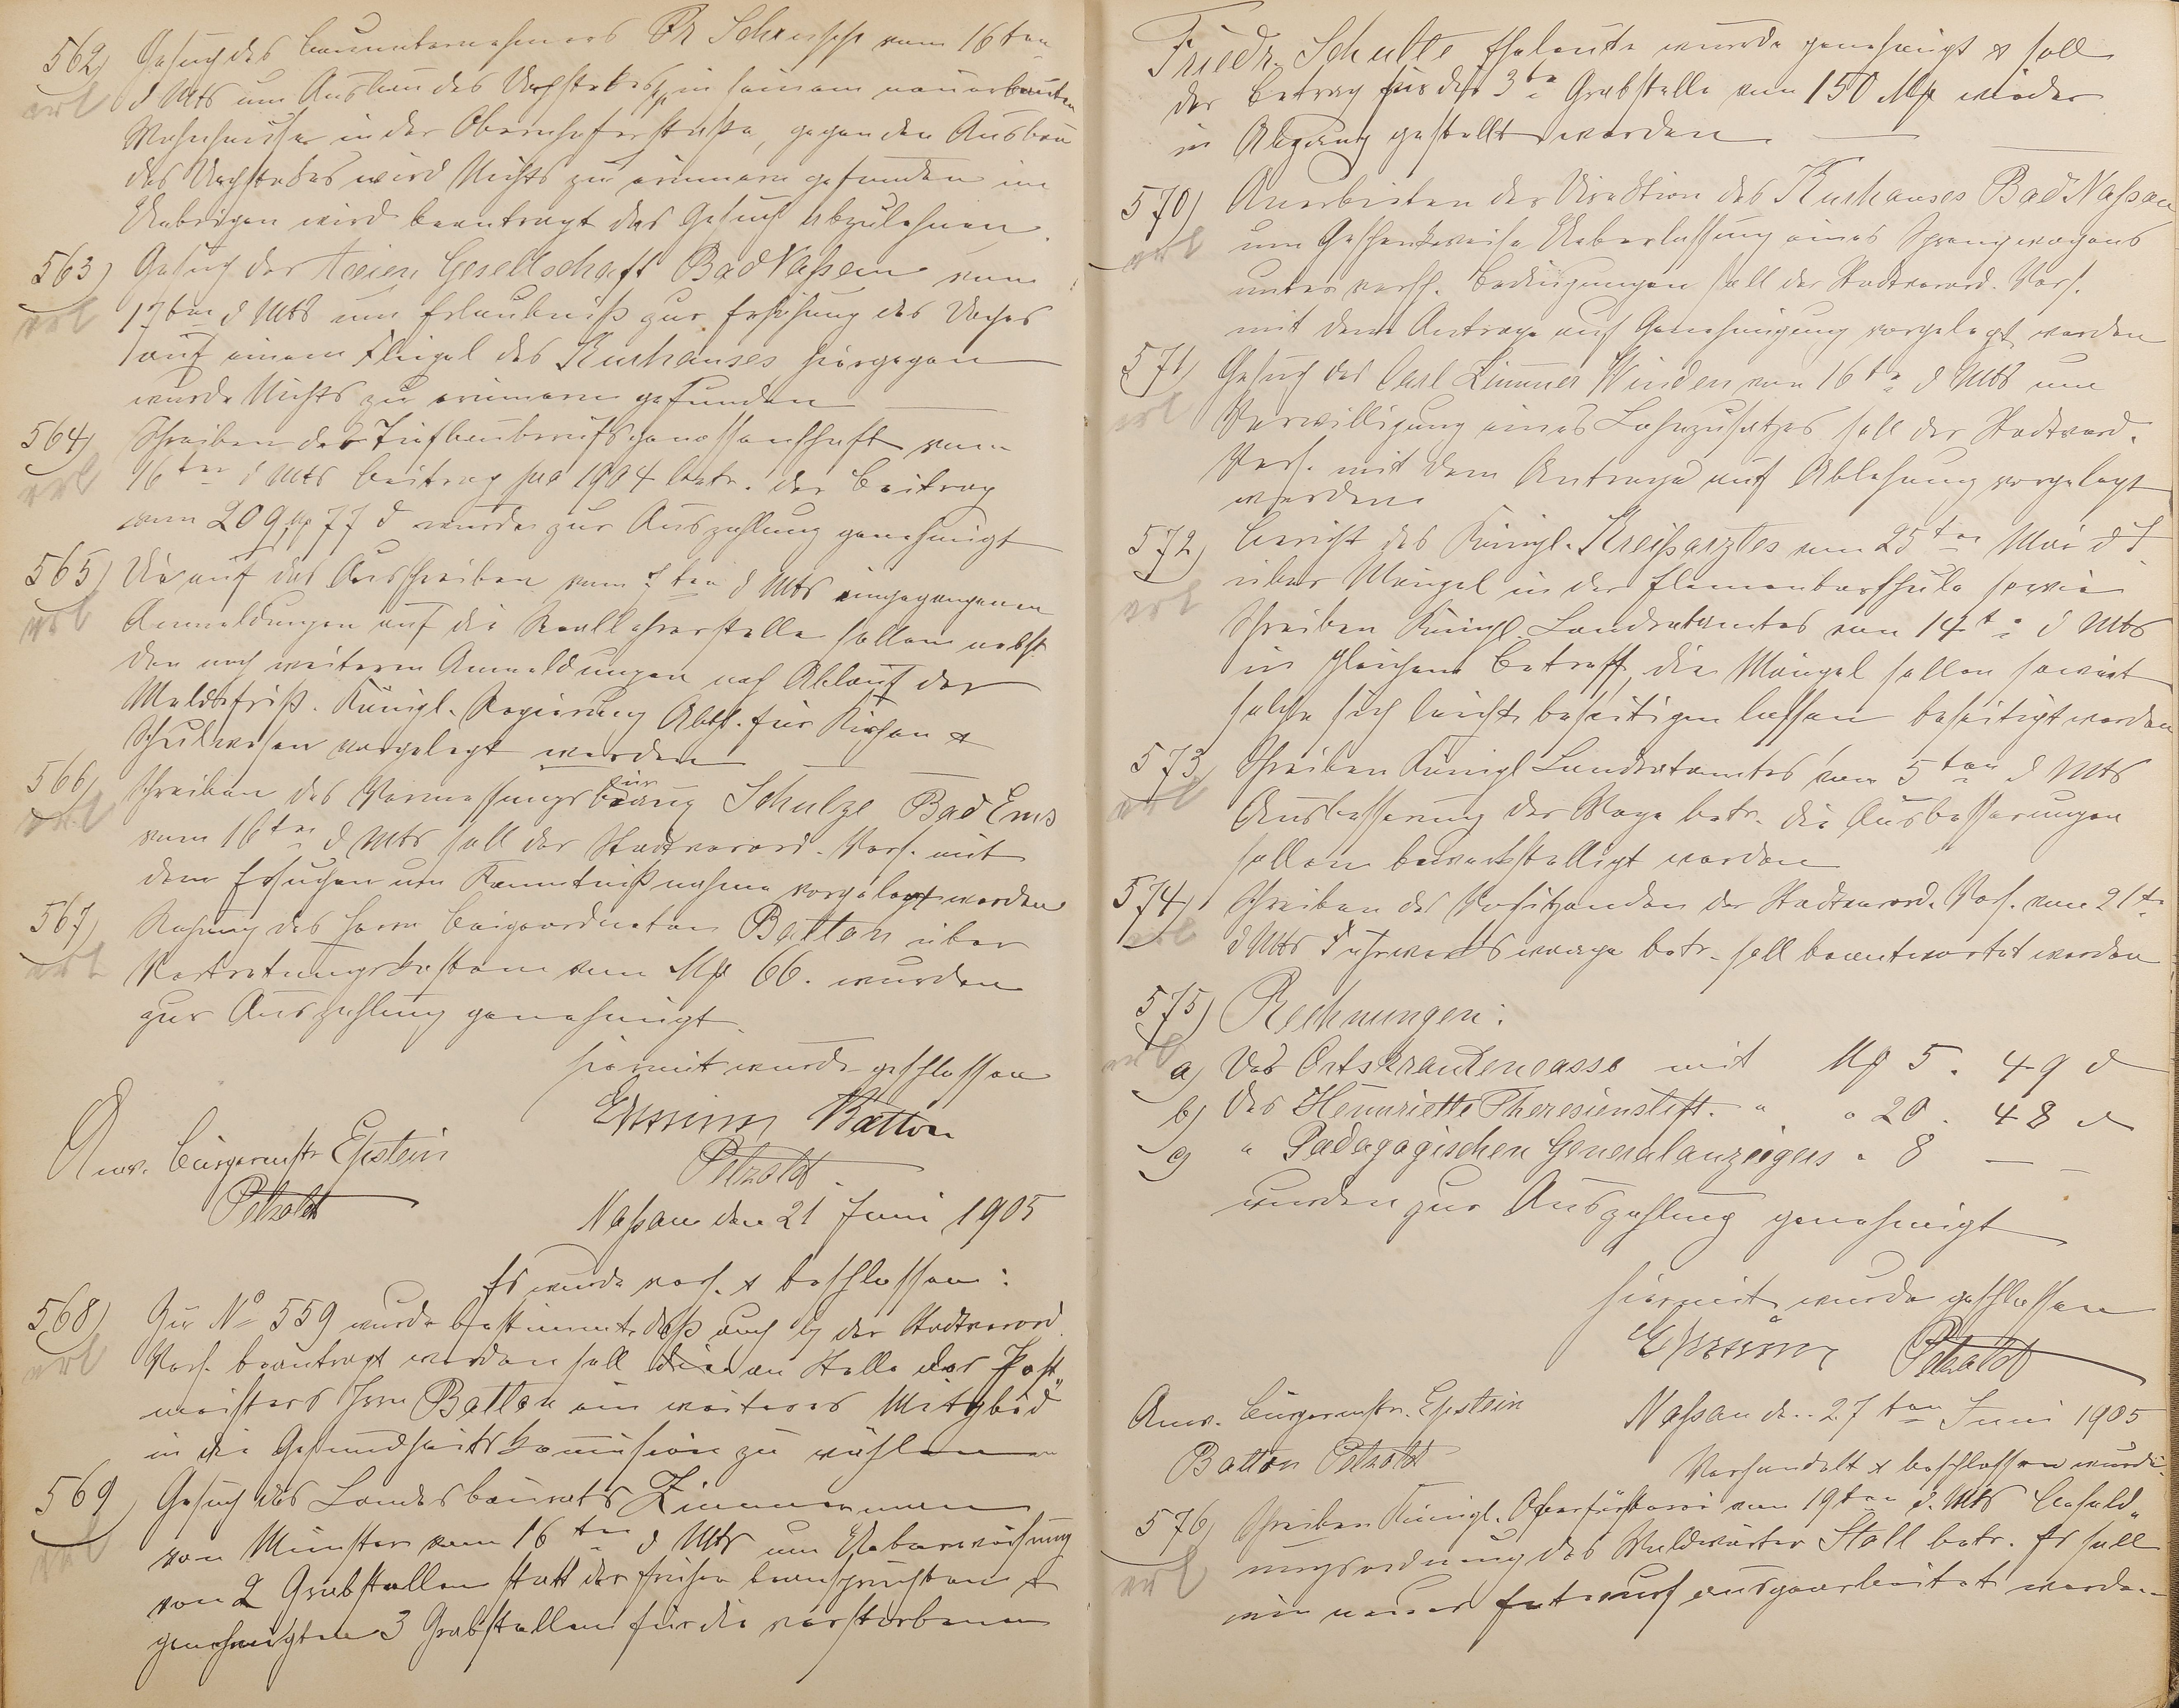 562) Gesuch des Bauunternehmers vom 16ten
erl d Mts um Ausbau des Dachstockes in seinem neuerbauten
Wohnhause in der Obernhoferstraße, gegen den Ausbau
des Dachstockes wird Nichts zu erinnern gefunden im
Uebrigen wird beantragt das Gesuch abzulehnen.
563) Gesuch der Actien Gesellschaft Bad Naßau vom
erl 17ten d Mts um Erlaubniß zur Erhöhung des Daches
auf einem Flügel des Kurhauses hiergegen
wurde Nichts zu erinnern gefunden
564) Schreiben der Tiefbauberufsgenossenschaft vom
erl 16ten d Mts Beitrag pro 1904 betr. der Beitrag
von 209 M 77 d wurde zur Auszahlung genehmigt
565) Die auf das Ausschreiben vom 7ten d Mts eingegangenen
erl Anmeldungen auf die Reallehrerstelle sollen nebst
den noch weiteren Anmeldungen nach Ablauf der
Meldefrist. Königl. Regierung Abtl. für Kirchen &
Schulwesen vorgelegt werden
566) Schreiben des Vermessungsbüreaus Schulze Bad Ems
erl vom 16ten d Mts soll der Stadtverord. Vers. mit
dem Ersuchen um Kenntnißnahme vorgelegt werden
567) Rechnung des Herrn Beigeordneten Batton über
erl Vertretungskosten von Mk 66. wurden
zur Auszahlung genehmigt.
hiermit wurde geschlossen
Batton
Petzoldt
Anw. Bürgermstr Epstein
Petzoldt
Naßau den 21 Juni 1905
Es wurde verh. & beschlossen:
568) Zu No 559 wurde bestimmt daß auch bei der Stadtverord.
erl Vers. beantragt werden soll an Stelle des Post"
meisters Herrn Batton ein weiteres Mitglied
in die Gesundheitskommission zu wählen
569) Gesuch des Landesbaurats Zimmermann
erl von Münster vom 16ten d Mts um Ueberweisung
von 2 Grabstellen statt der früher beanspruchten &
genehmigten 3 Grabstellen für die verstorbenen
Friedr. Schulte Eheleute wurde genehmigt & soll
der Betrag für die 3te Grabstelle von 150 Mk wieder
in Abgang gestellt werden.
570) Anerbieten der Direktion des Kurhauses Bad Naßau
erl um Geschenkweise Ueberlassung eines Sprengwagens
unter versch. Bedingungen soll der Stadtverord. Vers.
mit dem Antrage auf Genehmigung vorgelegt werden
571) Gesuch des Carl Limmer Winden vom 16ten d Mts um
erl Verwilligung eines Lohnzusatzes soll der Stadtverord.
Vers. mit dem Antrage auf Ablehnung vorgelegt
werden
572) Bericht des Königl. Kreisarztes vom 25ten Mai d J
erl über Mängel in der Elementarschule sowie
Schreiben Königl. Landratsamtes vom 14ten d Mts
in gleichem Betreff, die Mängel sollen soweit
solche sich leicht beseitigen lassen beseitigt werden
573) Schreiben Königl Landratsamtes vom 5ten d Mts
erl Ausbesserung der Wege betr. die Ausbesserungen
sollen bewerkstelligt werden
574) Schreiben des Vorsitzenden der Stadtverord. Vers. vom 21ten
erl d Mts Fuhrwerkswaage betr. soll beantwortet werden
575) Rechnungen:
erl a) Der Ortskrankencasse mit Mk 5. 49 d
b) Des Henriette Theresienstift. " " 20. 48 d
c) " Pädagogischen Generalanzeigers " 8 — —
wurden zur Auszahlung genehmigt
hiermit wurde geschlossen
Petzoldt
Anw. Bürgermstr. Epstein
Batton Petzoldt
Naßau den 27ten Juni 1905
Verhandelt & beschlossen wurde.
576) Schreiben Königl. Oberförsterei vom 19ten d. Mts Besold"
erl ungsordnung des Waldwärter Stoll betr. Es soll
ein neuer Entwurf ausgearbeitet werden